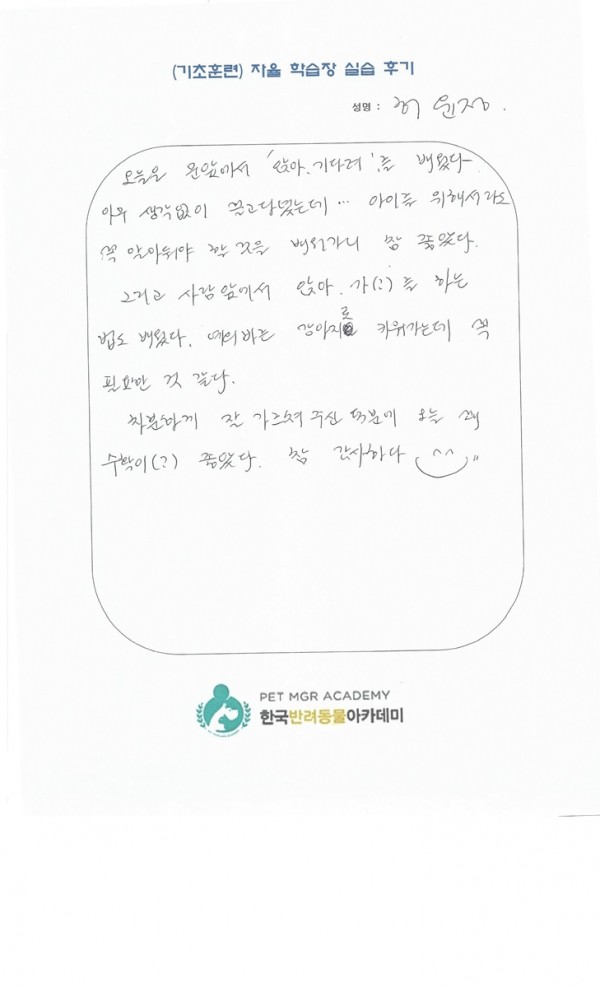 (기초훈련) 자율 학습장 실습 후기
성명 : 허 윤정.
오늘은 문앞에서 '앉아. 기다려'를 배웠다
아무 생각없이 끌고다녔는데... 아이를 위해서라도
꼭 알아둬야 할 것을 배워가니 참 좋았다.
그리고 사람앞에서 앉아. 가(?)를 하는
법도 배웠다. 예의바른 강아지로 키워가는데 꼭
필요한 것 같다.
차분하게 잘 가르쳐주신 덕분에 오늘
수확이(?) 좋았다. 참 감사하다 ^^
PET MGR ACADEMY
한국반려동물아카데미